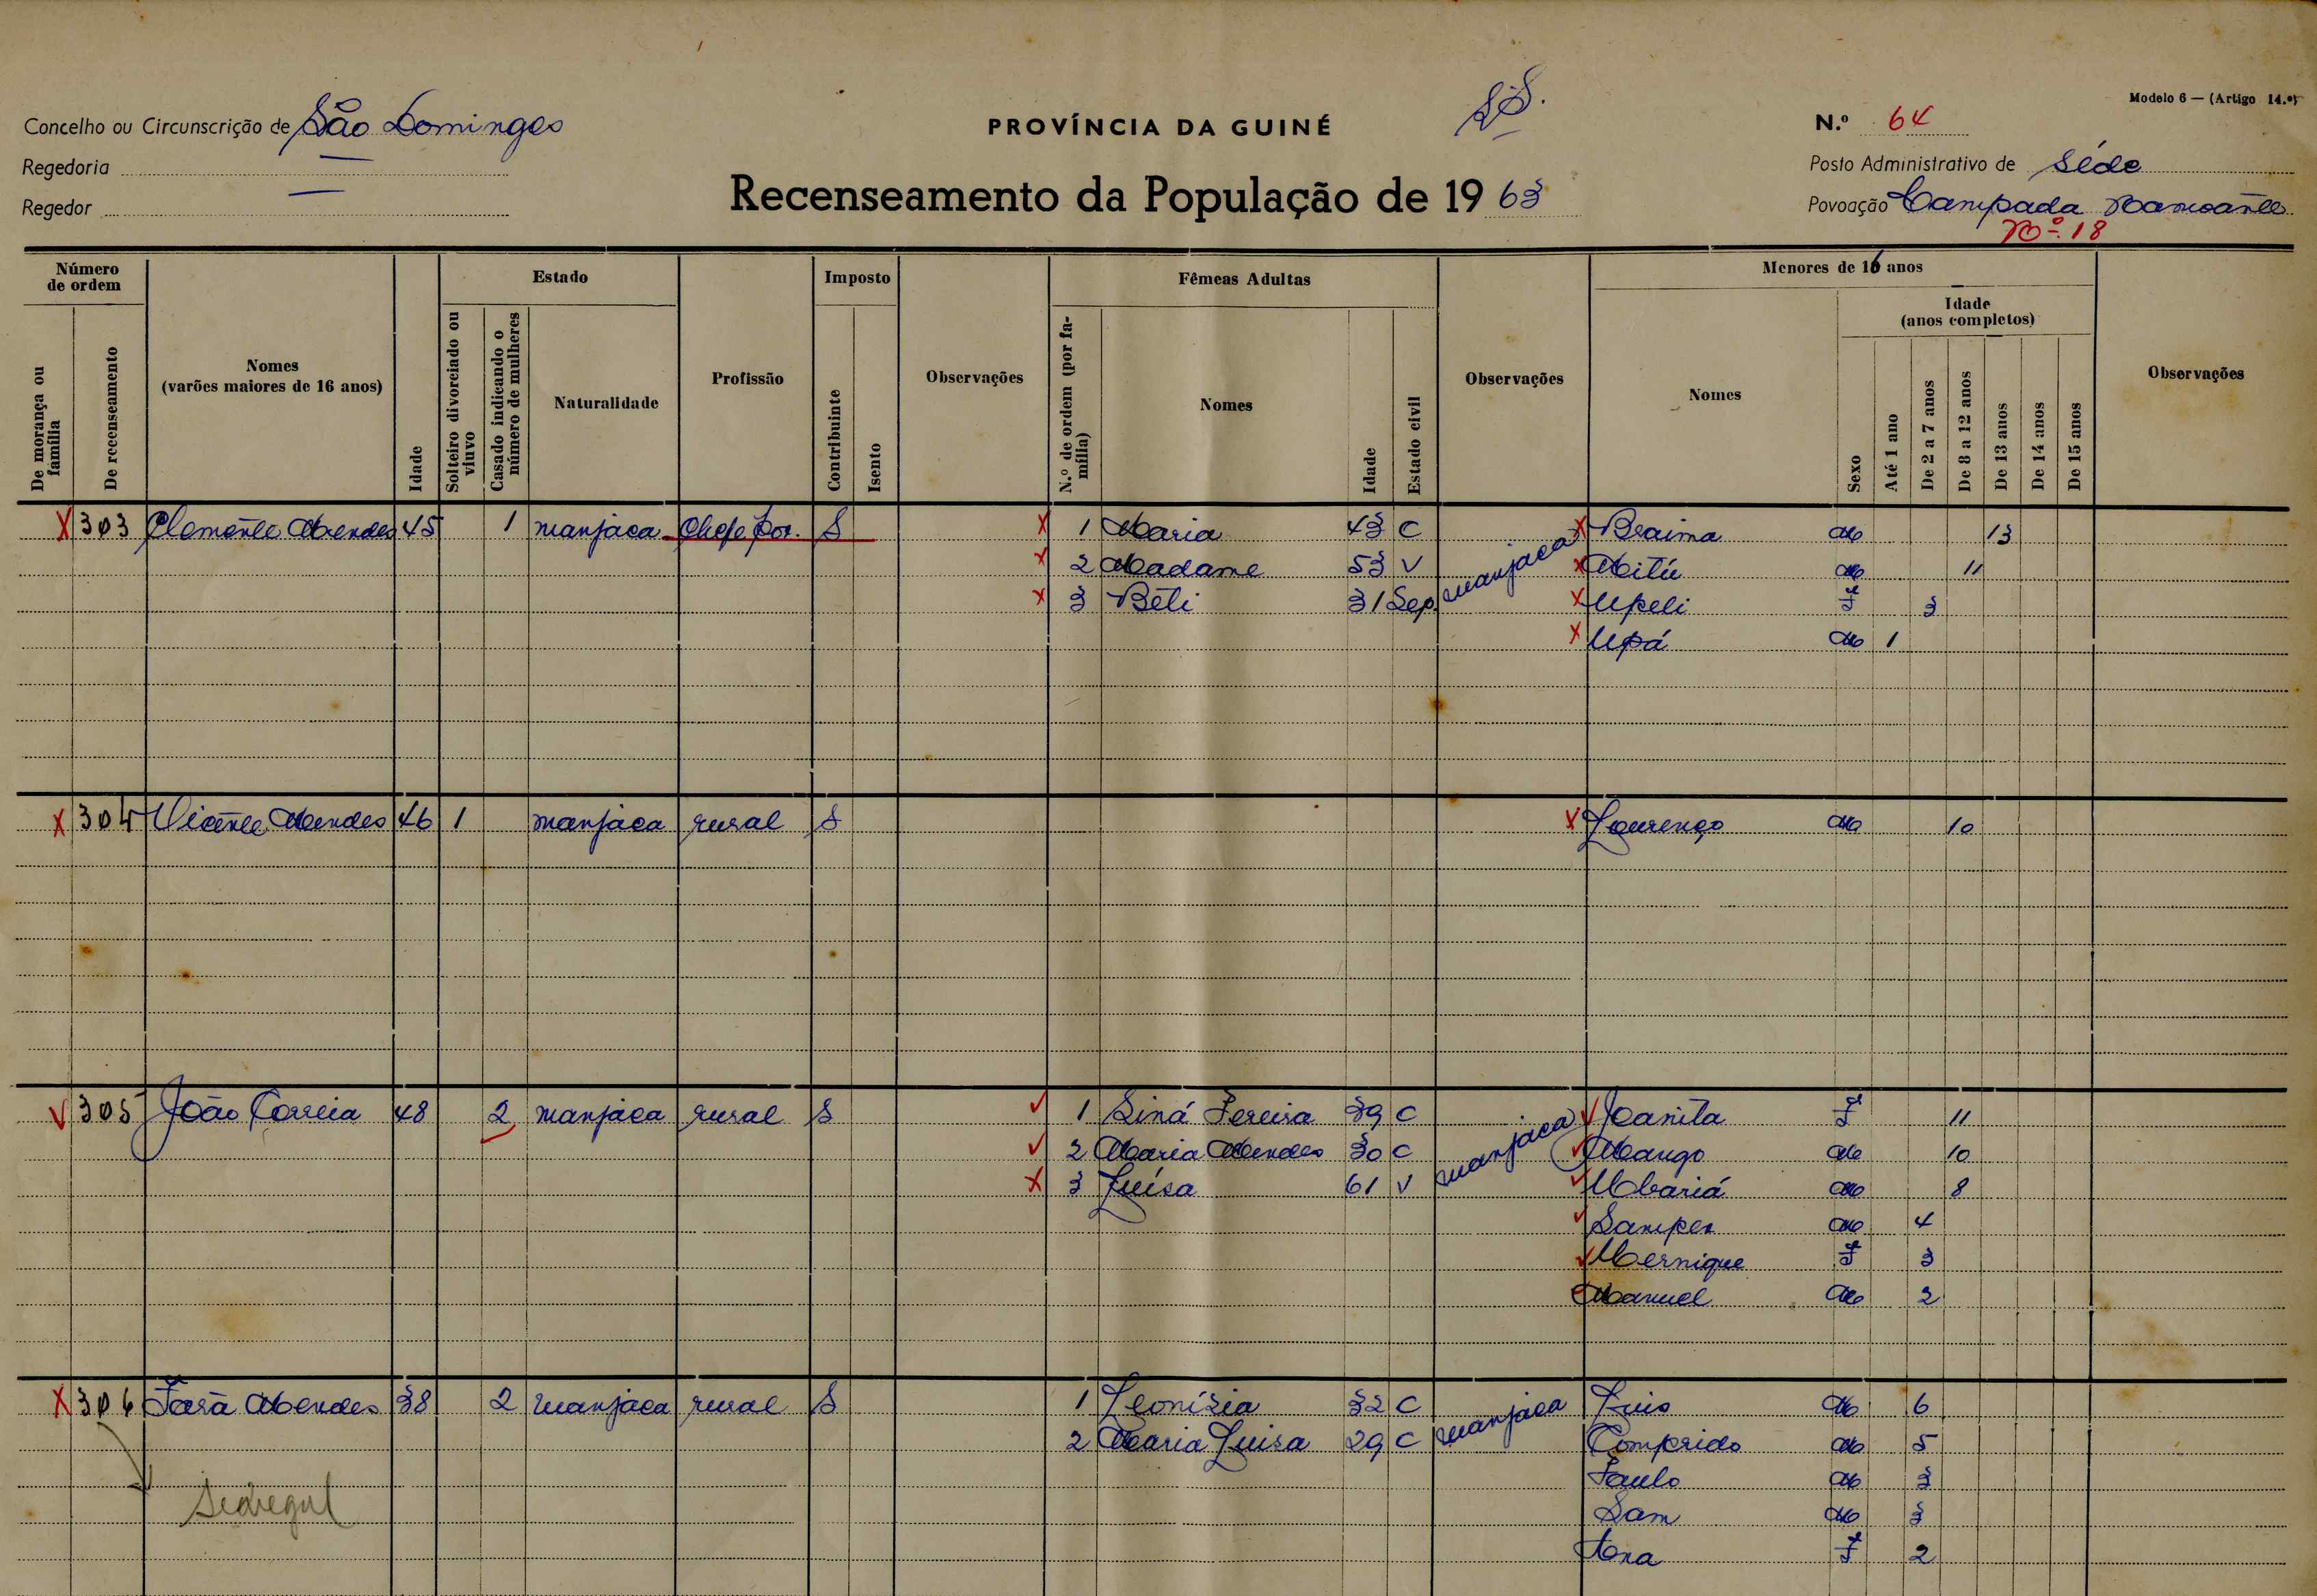 Modelo 6 — (Artigo 14.º)
Concelho ou Circunscrição de São Domingos
PROVÍNCIA DA GUINÉ
N.º 64
Regedoria —
Posto Administrativo de Séde
Regedor —
Recenseamento da População de 1963
Povoação Campada
Nº 18
Número de ordem
De morança ou família
De recenseamento
Nomes
(varões maiores de 16 anos)
Idade
Estado
Solteiro divorciado ou viuvo
Casado indicando o número de mulheres
Naturalidade
Profissão
Imposto
Contribuinte
Isento
Observações
Fêmeas Adultas
N.º de ordem (por família)
Nomes
Idade
Estado civil
Observações
Menores de 16 anos
Nomes
Sexo
Idade
(anos completos)
Até 1 ano
De 2 a 7 anos
De 8 a 12 anos
De 13 anos
De 14 anos
De 15 anos
Observações
X 303 Clemente Mendes 45 1 manjaca Chefe pov. S X 1 Maria 43 C manjaca X Braima M 13
X 2 Madame 53 V X Mitú M 11
X 3 Beti 31 Sep. X Upeli F 3
X Upá M 1
X 304 Vicente Mendes 46 1 manjaca rural S X Lourenço M 10
305 João Correia 48 2 manjaca rural S 1 Siná Pereira 39 C manjaca Joanita F 11
2 Maria Mendes 30 C Mango M 10
X 3 Luísa 61 V Mbariá M 8
Samper M 4
Mernique F 3
Manuel M 2
X 306 Fará Mendes 38 2 manjaca rural S 1 Leonízia 32 C manjaca Luis M 6
2 Maria Luisa 29 C Comprido M 5
Paulo M 3
Senegal
Sam M 3
Ana F 2